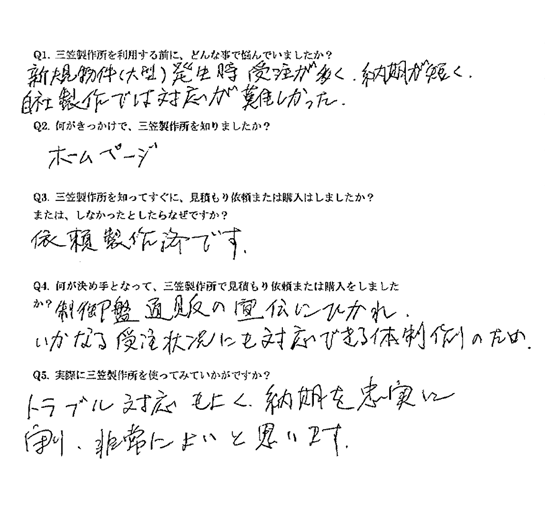 Q1. 三笠製作所を利用する前に、どんな事で悩んでいましたか？
新規物件(大型)発生時 受注が多く、納期が短く、
自社製作では対応が難しかった。
Q2. 何がきっかけで、三笠製作所を知りましたか？
ホームページ
Q3. 三笠製作所を知ってすぐに、見積もり依頼または購入はしましたか？
または、しなかったとしたらなぜですか？
依頼製作済です。
Q4. 何が決め手となって、三笠製作所で見積もり依頼または購入をしました
か？制御盤通販の宣伝にひかれ、
いかなる受注状況にも対応できる体制作りのため
Q5. 実際に三笠製作所を使ってみていかがですか？
トラブル対応もよく、納期を忠実に
守り、非常によいと思います。